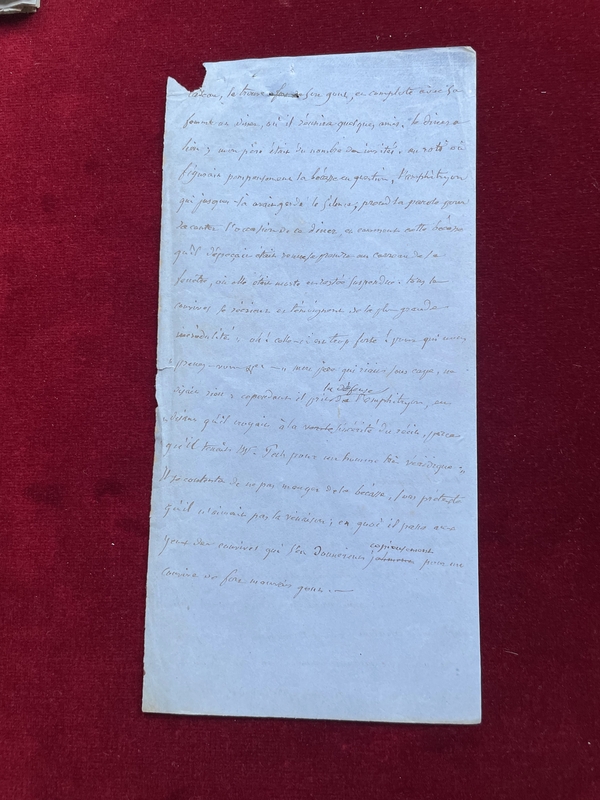 la trouve fort de son gout, et complote avec sa
femme un diner, où il réunira quelques amis. Le diner a
lieu; mon père était du nombre des invités. au roti où
figurait pompeusement la bécasse en question, l'amphitryon
qui jusque là avait gardé le silence, prend la parole pour
raconter l'occasion de ce diner, et comment cette bécasse
qu'il était venue se prendre au carreau de sa
fenêtre, où elle était morte et restée suspendue. tous les
convives se récrient et témoignent de la plus grande
incrédulité; ah! celle-ci est trop forte! pour qui nous
prenez-vous &c—, mon père qui riait sous cape, ne
disait rien; cependant il prit la défense de l'amphitryon, en
disant qu'il croyait à la sincérité du récit, parce
qu'il tenait Mr. pour un homme très véridique.
Il se contenta de ne pas manger de la bécasse, sous prétexte
qu'il n'aimait pas la venaison; en quoi il passa aux
yeux des convives qui s'en donnèrent copieusement pour un
convive de fort mauvais gout.—